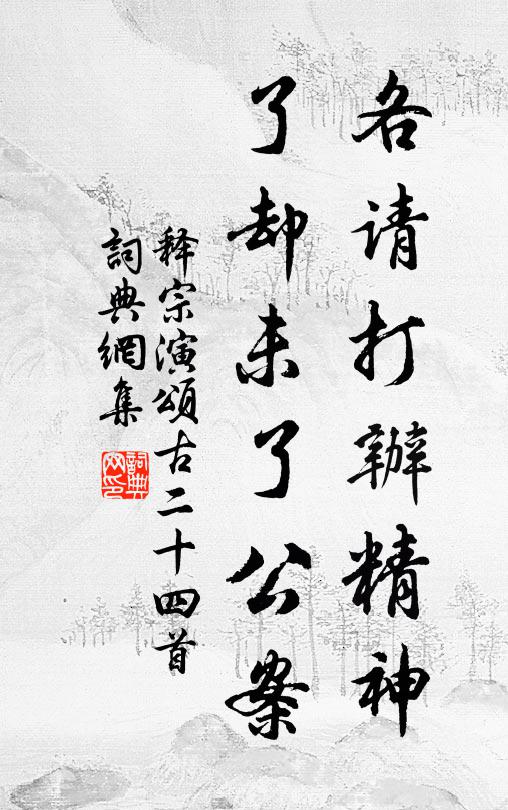 各请打辦精神
了却未了公案
释宗演頌古二十四首
詞典網集
詞典网印